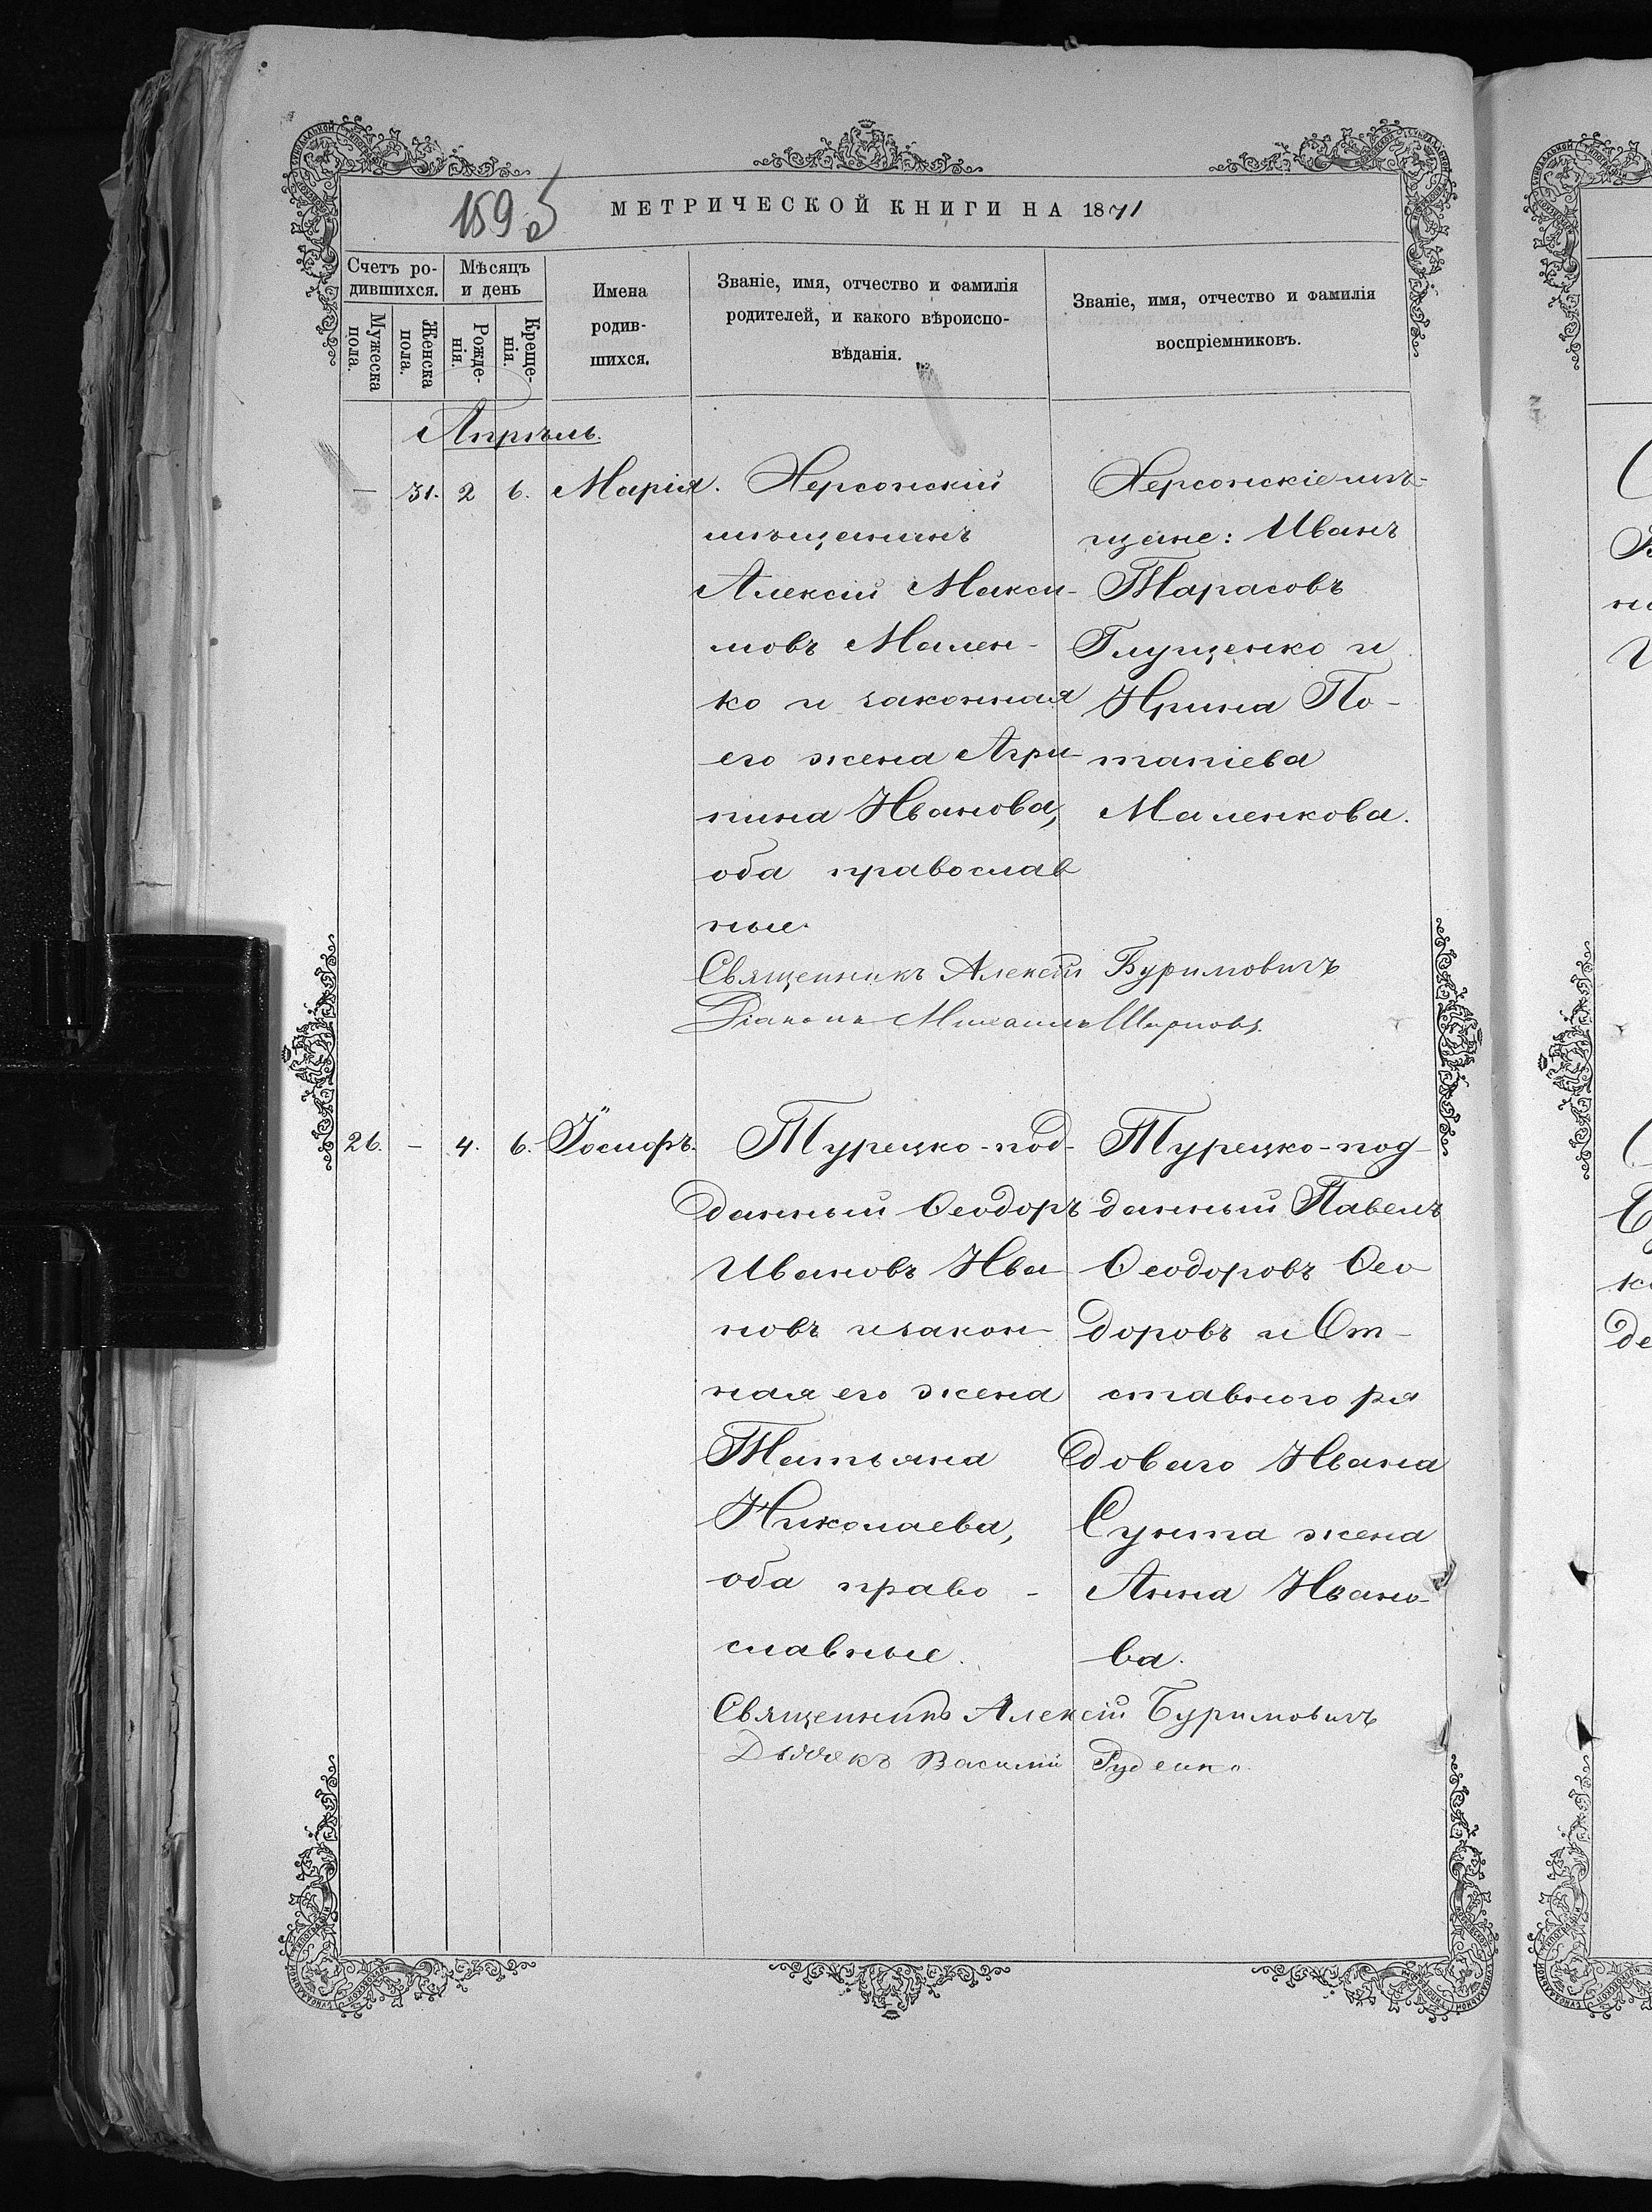 159 об
МЕТРИЧЕСКОЙ КНИГИ НА 1871
Счетъ ро-
дившихся.
Мѣсяцъ
и день
Мужеска
пола.
Женска
пола.
Рожде-
нія.
Креще-
нія.
Имена
родив-
шихся.
Званіе, имя, отчество и фамилія
родителей, и какого вѣроиспо-
вѣданія.
Званіе, имя, отчество и фамилія
воспріемниковъ.
Апрѣль.
— 31. 2 6. Марія.
Херсонскій
мѣщанинъ
Алексій Макси-
мовъ Мален-
ко и законная
его жена Агри-
пина Иванова,
оба православ
ные.
Херсонскіе мѣ-
щане: Иванъ
Тарасовъ
Глущенко и
Ирина По-
тапіева
Маленкова.
Священникъ Алексій Буримовичъ
Діаконъ Михаилъ
26. — 4. 6. Іосифъ.
Турецко-под-
данный Ѳеодоръ
Ивановъ Ива-
новъ и закон-
ная его жена
Татьяна
Николаева,
оба право-
славные.
Турецко-под-
данный Павелъ
Ѳеодоровъ Ѳео-
доровъ и От-
ставного ря
доваго Ивана
жена
Анна Ивано-
ва.
Священникъ Алексій Буримовичъ
Дьячекъ Василій Руденко.